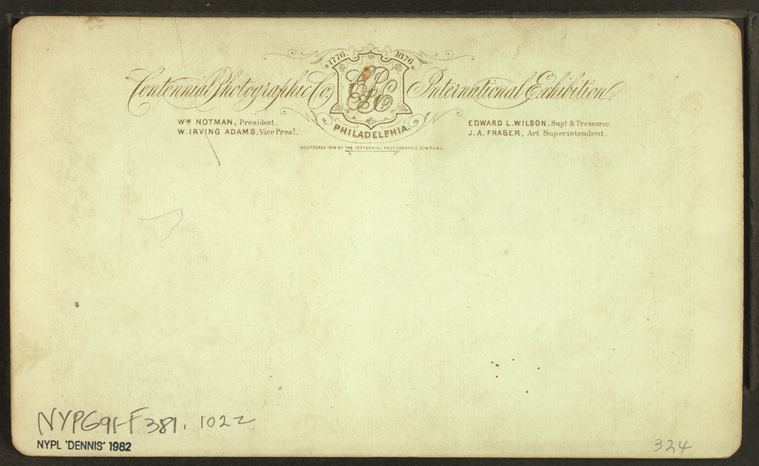 1776. 1876.
Centennial Photographic Co, International Exhibition.
CPC
PHILADELPHIA.
Wᴹ NOTMAN, President.
W. IRVING ADAMS, Vice Presᵗ.
EDWARD L. WILSON, Supt & Treasurer.
J. A. FRASER, Art Superintendent.
REGISTERED 1876 BY THE CENTENNIAL PHOTOGRAPHIC COMPANY.
NYPG91-F381.1022
NYPL 'DENNIS' 1982
324